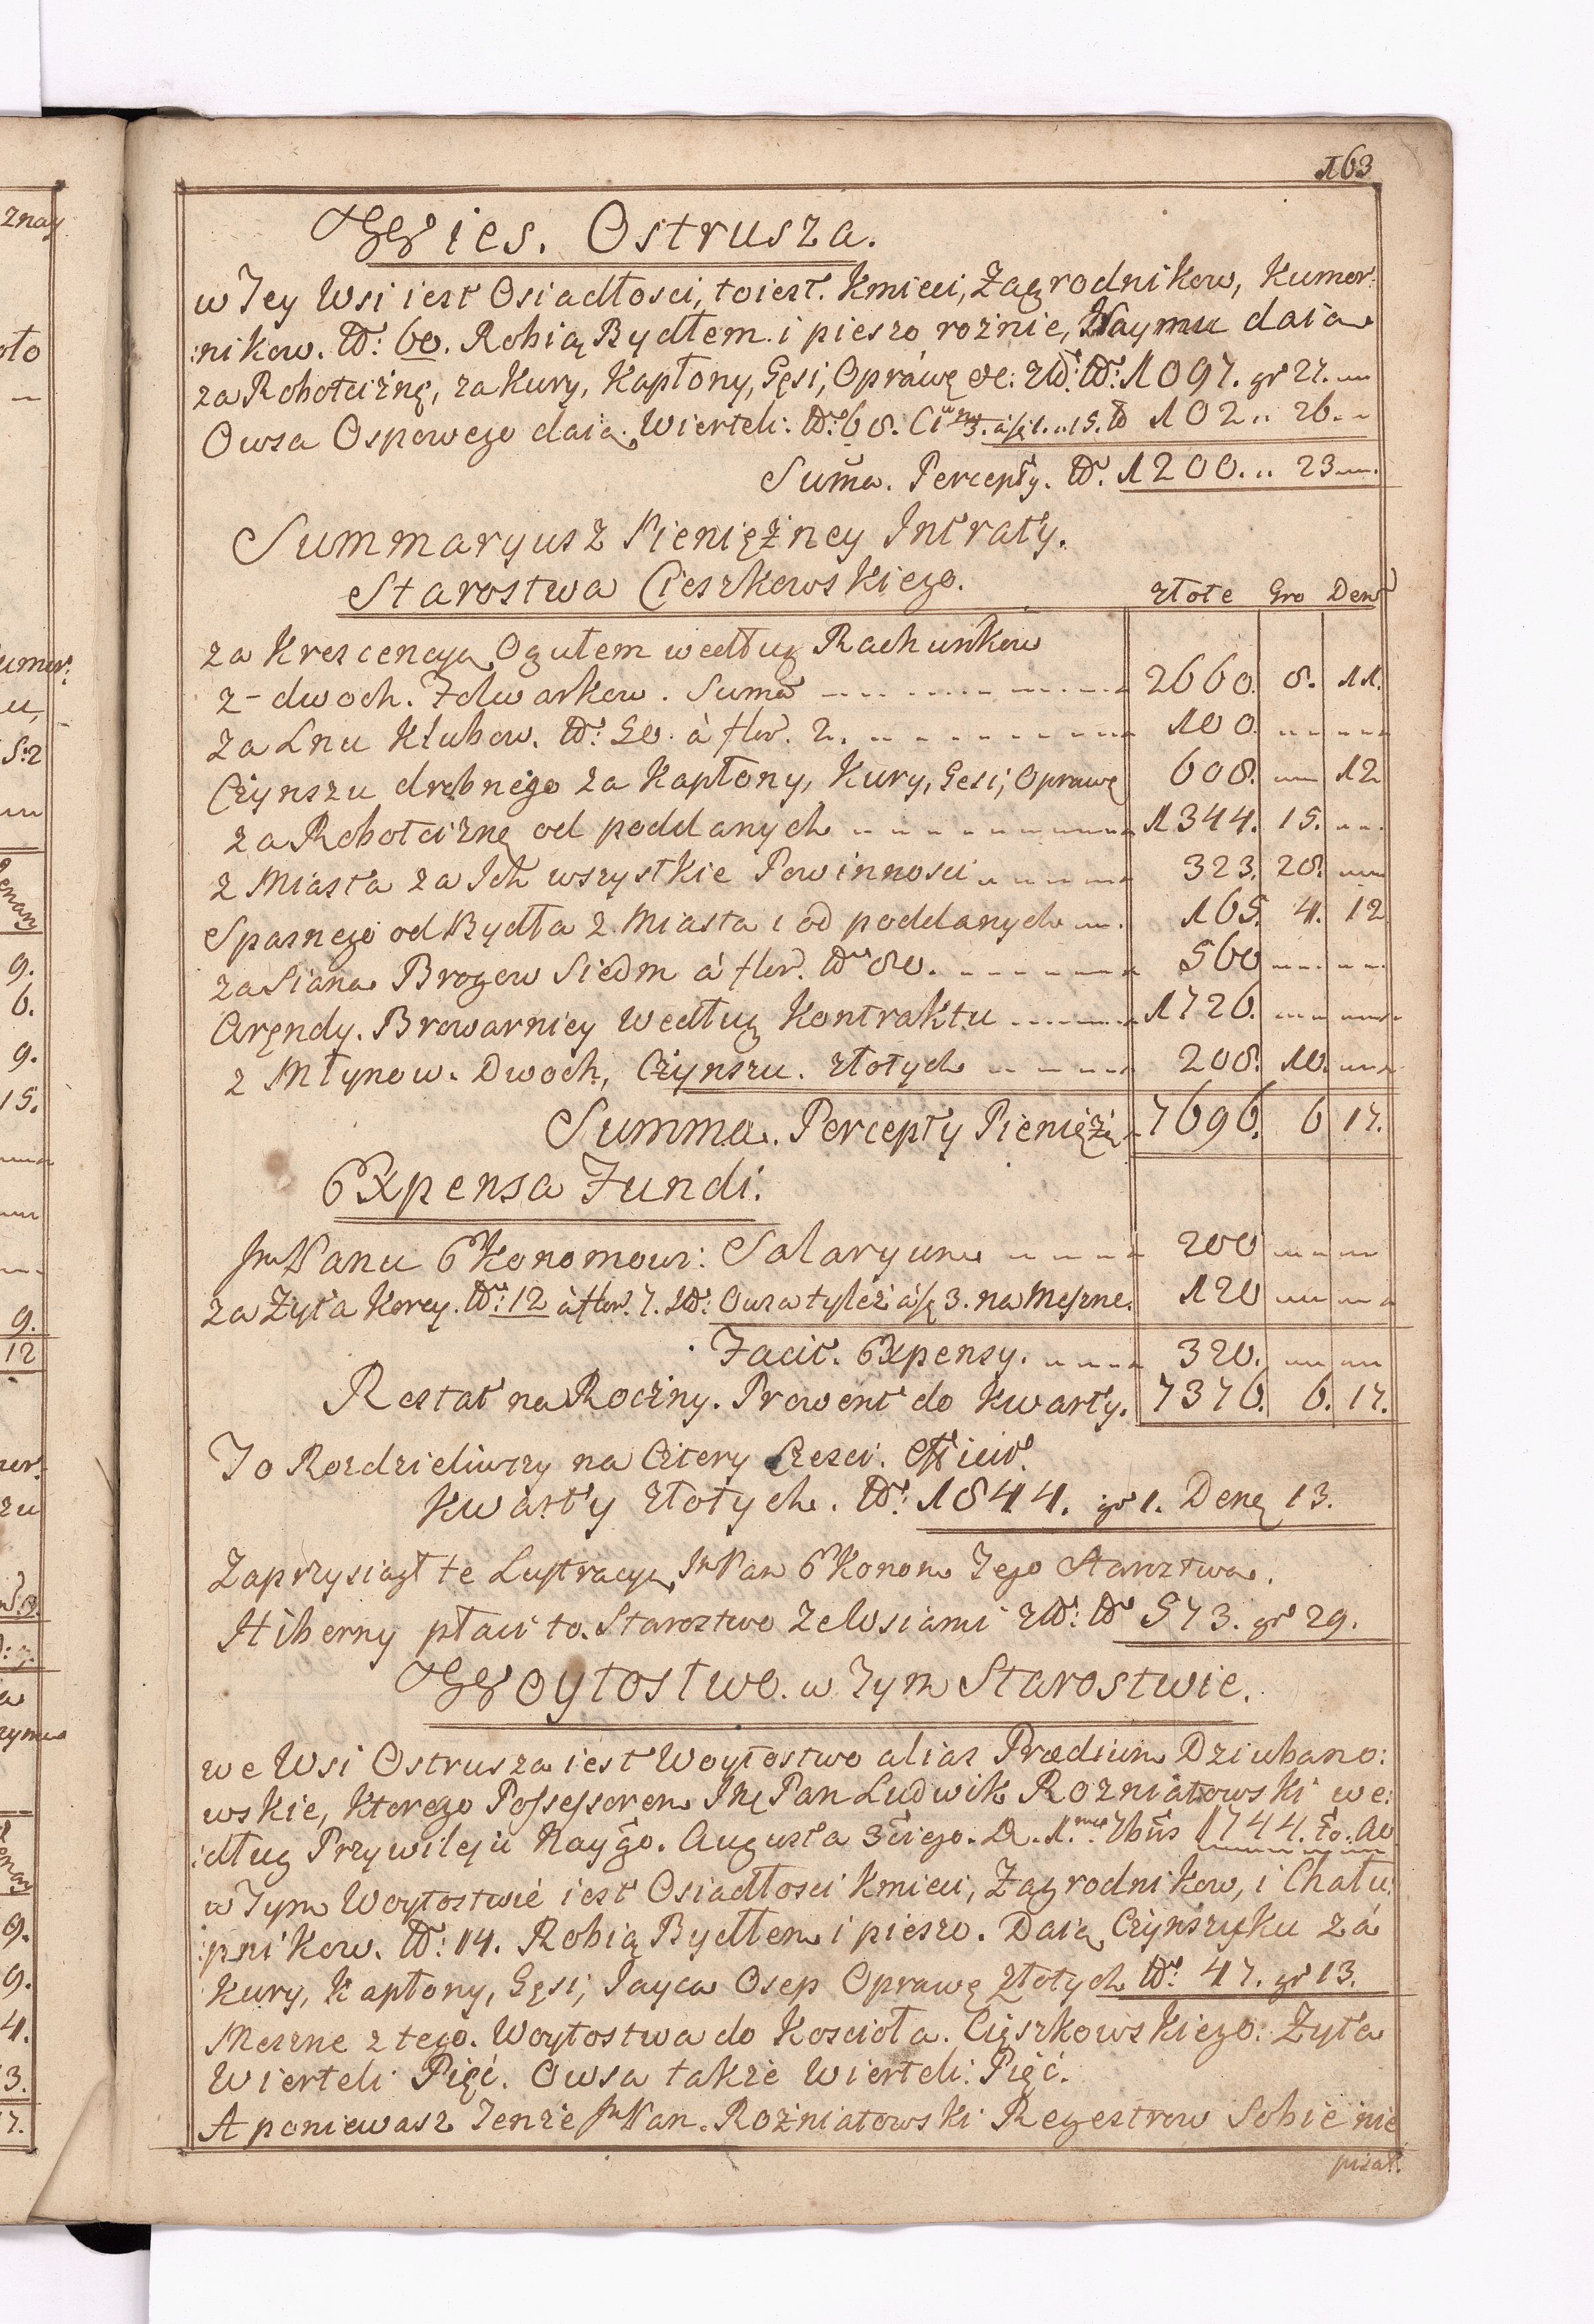 163
Wies. Ostrusza.
w Tey Wsi iest Osiadłosci, toiest. Kmieci, Zagrodnikow, Kumor:
:nikow. No: 60. Robią Bydłem i pieszo rożnie, Naymu daią
za Robociznę, za Kury, Kapłony, Gęsi, Oprawę &c: No: 1097. gr 27. —
Owsa Ospowego daią Wierteli: No: 68. à fl 1..15. No 102 .. 26. —
Suma. Percepty. No. 1200. .. 23 —.
Summaryusz Pieniężney Intraty.
Starostwa Cieszkowskiego. złote Gro Den
za Krescencyą Ogułem według Rachunkow
z - dwoch. Folwarkow. Suma 2660. 8. 11.
za Lnu Kłubow. No: 50. à flor. 2. 100.
Czynszu drobnego za Kapłony, Kury, Gęsi, Oprawę 608. — 12
za Robociznę od poddanych 1344. 15. —
z Miasta za Ich wszystkie Powinnosci 323. 28. —
Spasnego od Bydła z Miasta i od poddanych 165. 4. 12
za Siana Brogow Siedm à flor. No 80. 560
Arędy. Browarniey według Kontraktu 1726.
z Młynow. Dwoch, Czynszu. złotych 208. 10. —
Summa. Percepty Pieniężń 7696. 6 17.
Expensa Fundi.
Jm Panu Ekonomowi: Salaryum 200
za Żyta Korcy. No: 12 à flor. 7. It: Owsa tyleż à fl 3. na Meszne. 120
Facit. Expensy. 320.
Restat na Roczny. Prowent do Kwarty. 7376. 6. 17.
To Rozdzieliwszy na Cztery Czesci. Efficit.
Kwarty złotych. No: 1844. gr 1. Dena 13.
Zaprzysiągł te Lustracyą Jm Pan Ekonom Tego Starostwa.
Hiberny płaci to. Starostwo Ze Wsiami No 573. gr 29.
Woytostwo. w Tym Starostwie.
we Wsi Ostrusza iest Woytostwo alias Prædium Dziubano:
wskie, Ktorego Possessorem Jm Pan Ludwik Rozniatowski we:
:dług Przywileju Naygo. Augusta 3ciego. D. 1. 7bris 1744.
w Tym Woytostwie iest Osiadłosci Kmieci, Zagrodnikow, i Chału:
:pnikow. No: 14. Robią Bydłem i pieszo. Daią Czynszyku za
Kury, Kapłony, Gęsi, Jayca Osep Oprawę złotych No: 47. gr 13.
Meszne z tego. Woytostwa do Koscioła. Cięszkowskiego: Żyta
Wierteli Pięć. Owsa także Wierteli: Pięć.
A poniewasz Tenże Jm Pan. Rożniatowski Regestrow Sobie nie
pisał.